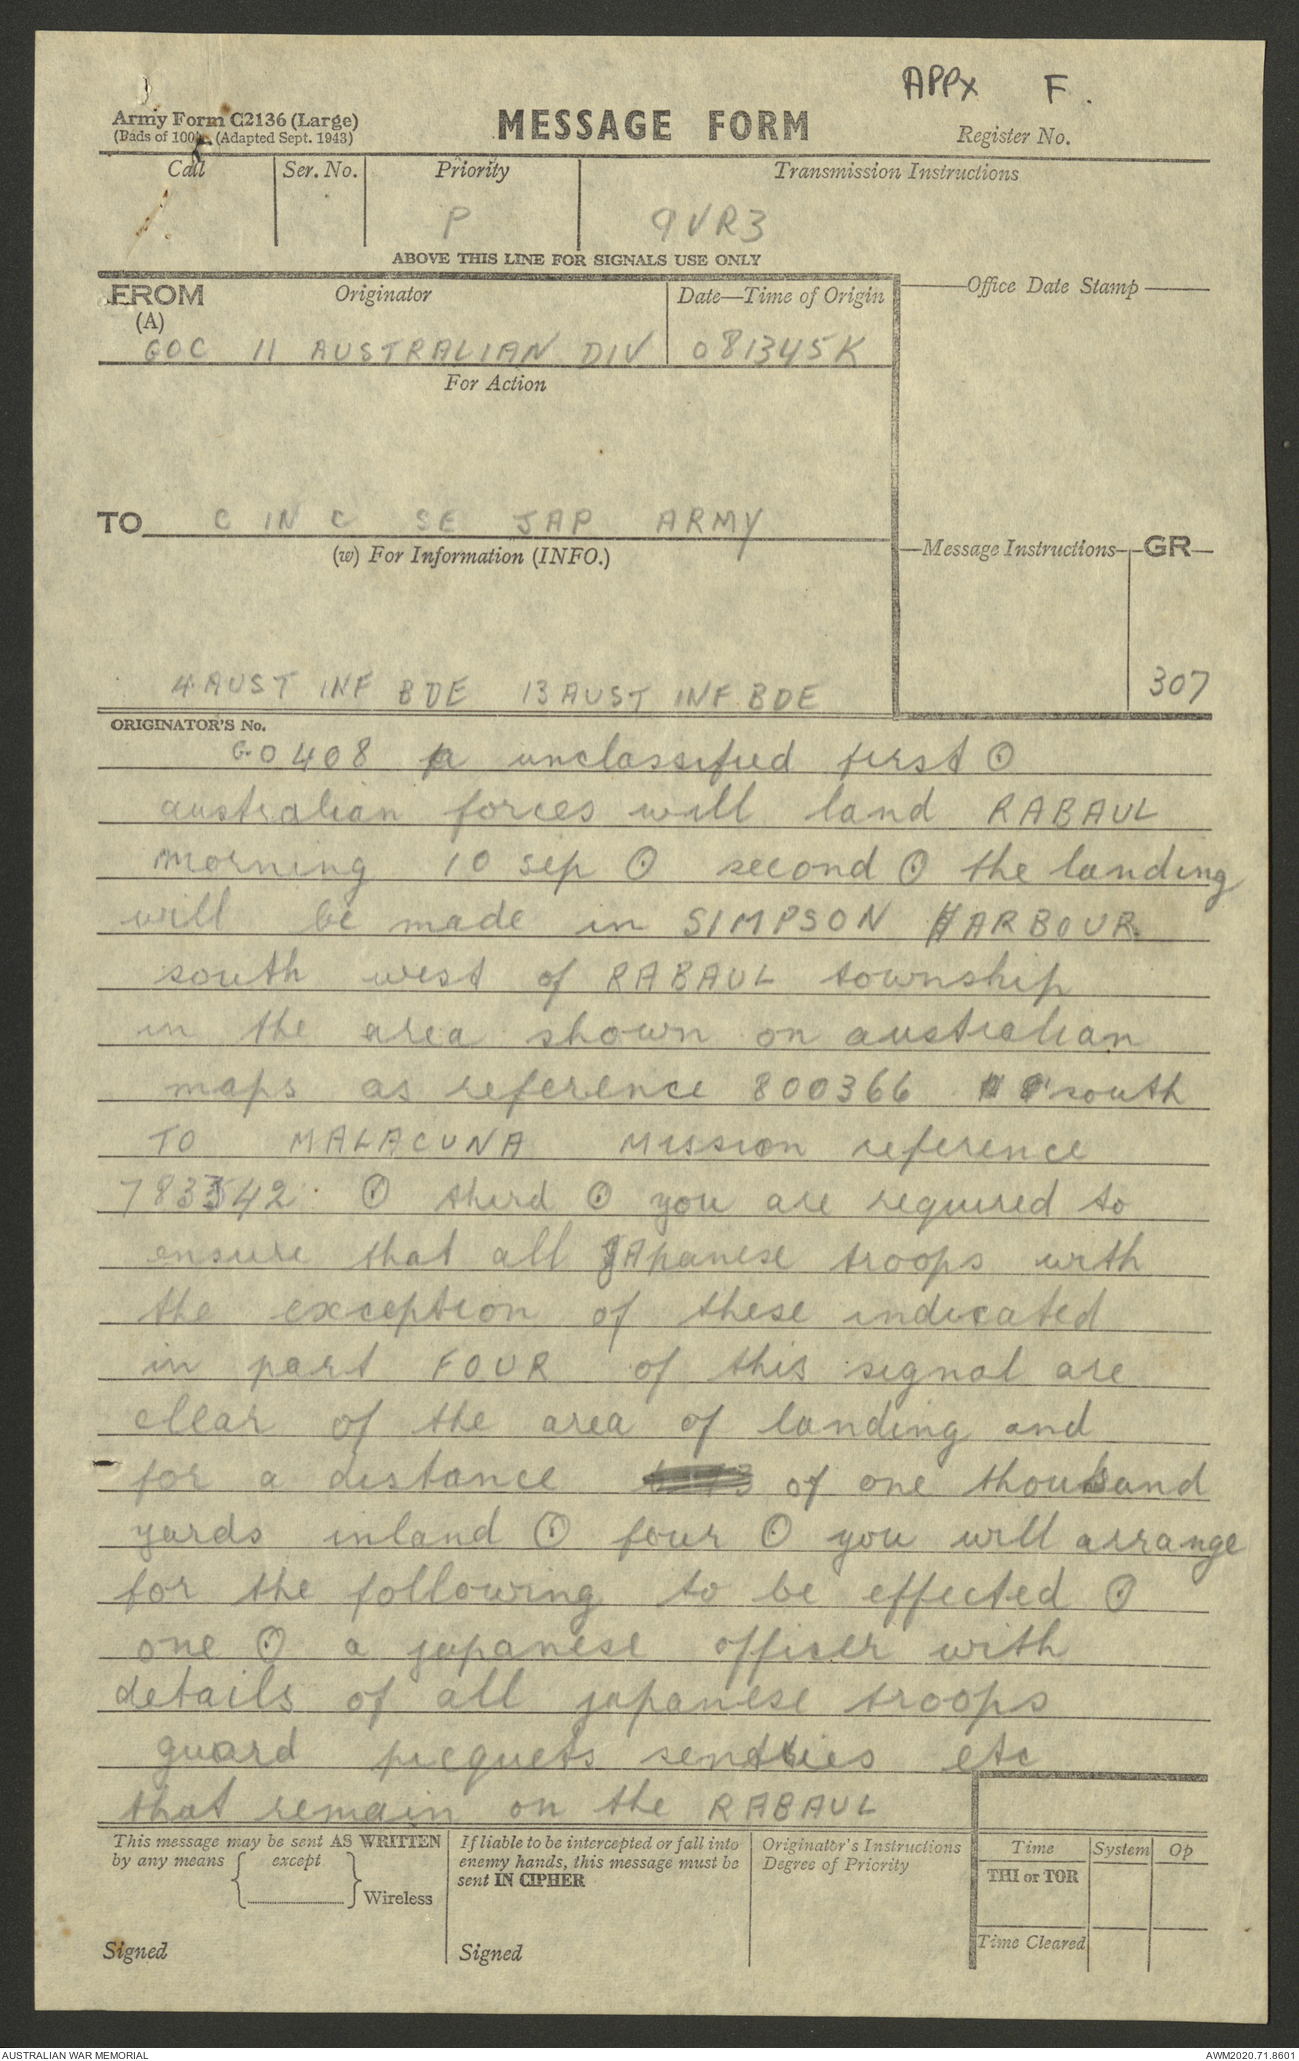 APPX F.
Army Form C2136 (Large)
(Pads of 100). (Adapted Sept. 1943)
MESSAGE FORM
Register No.
Call Ser. No. Priority Transmission Instructions
P 9VR3
ABOVE THIS LINE FOR SIGNALS USE ONLY
FROM Originator Date—Time of Origin Office Date Stamp
(A)
GOC 11 AUSTRALIAN DIV 081345K
For Action
TO C IN C SE JAP ARMY
(w) For Information (INFO.) Message Instructions GR
4 AUST INF BDE 13 AUST INF BDE 307
ORIGINATOR'S No.
GO408 unclassified first ⊙
australian forces will land RABAUL
morning 10 sep ⊙ second ⊙ the landing
will be made in SIMPSON HARBOUR
south west of RABAUL township
in the area shown on australian
maps as reference 800366 south
TO MALACUNA Mission reference
783542 ⊙ third ⊙ you are required to
ensure that all JApanese troops with
the exception of these indicated
in part FOUR of this signal are
clear of the area of landing and
for a distance of one thousand
yards inland ⊙ four ⊙ you will arrange
for the following to be effected ⊙
one ⊙ a japanese officer with
details of all japanese troops
guard picquets sentries etc
that remain on the RABAUL
This message may be sent AS WRITTEN
by any means { except } Wireless
If liable to be intercepted or fall into
enemy hands, this message must be
sent IN CIPHER
Originator's Instructions
Degree of Priority
Time System Op
THI or TOR
Time Cleared
Signed Signed
AUSTRALIAN WAR MEMORIAL AWM2020.71.8601